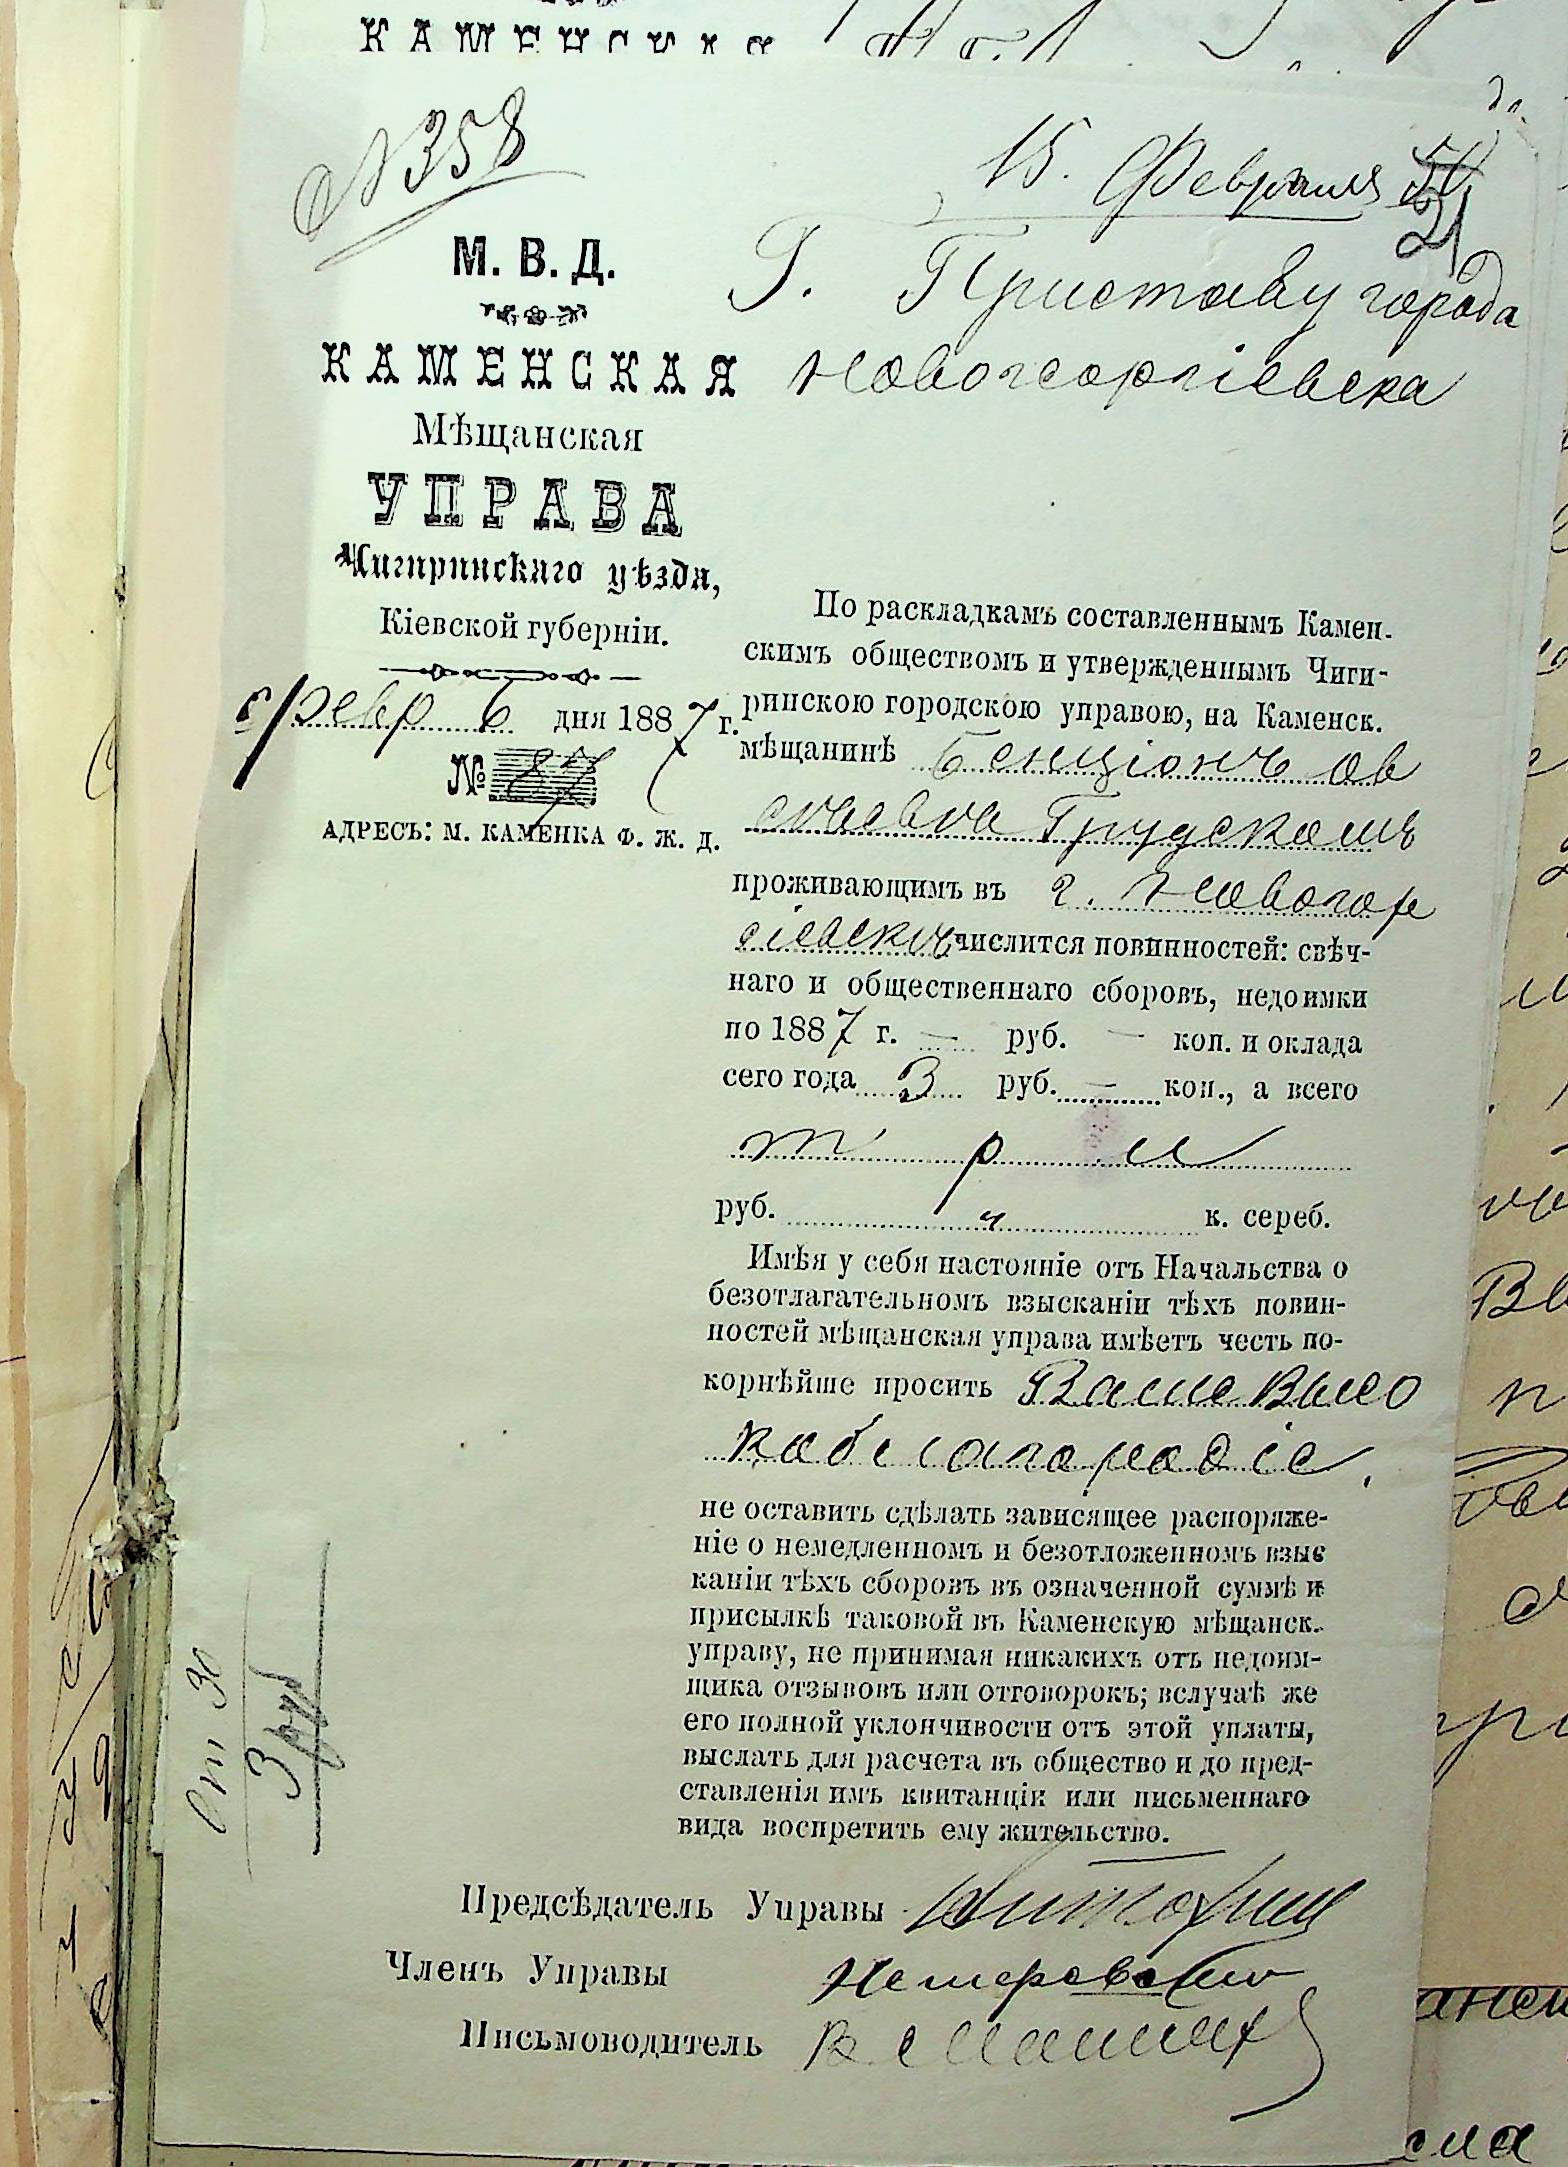 КАМЕНСКАЯ
№358
15. Февраля
21
М. В. Д.
Г. Приставу города
Новогеоргіевска
КАМЕНСКАЯ
Мѣщанская
УПРАВА
Чигиринскаго уѣзда,
Кіевской губерніи.
Февр 6 дня 1887 г.
№ 87
АДРЕСЪ: М. КАМЕНКА Ф. Ж. Д.
По раскладкамъ составленнымъ Камен-
скимъ обществомъ и утвержденнымъ Чиги-
ринскою городскою управою, на Каменск.
мѣщанинѣ Бенціонѣ Ов
сѣевѣ Грудскомъ
проживающимъ въ г. Новогеор
гіевскѣ числится повинностей: свѣч-
наго и общественнаго сборовъ, недоимки
по 1887 г. — руб. — коп. и оклада
сего года 3 руб. — коп., а всего
три
руб. " к. сереб.
Имѣя у себя настояніе отъ Начальства о
безотлагательномъ взысканіи тѣхъ повин-
ностей мѣщанская управа имѣетъ честь по-
корнѣйше просить Ваше Высо
коблагородіе,
не оставить сдѣлать зависящее распоряже-
ніе о немедленномъ и безотложенномъ взыс
каніи тѣхъ сборовъ въ означенной суммѣ и
присылкѣ таковой въ Каменскую мѣщанск.
управу, не принимая никакихъ отъ недоим-
щика отзывовъ или отговорокъ; вслучаѣ же
его полной уклончивости отъ этой уплаты,
выслать для расчета въ общество и до пред-
ставленія имъ квитанціи или письменнаго
вида воспретить ему жительство.
Ст 30
3 руб
Предсѣдатель Управы
Членъ Управы
Письмоводитель